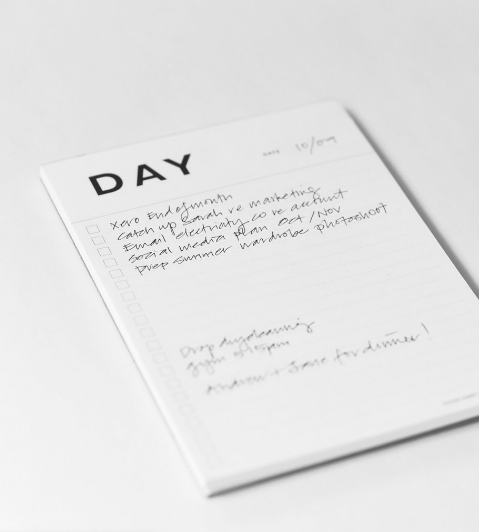 DAY
DATE 10/09
Xero End of month
Catch up Sarah re marketing
Email electricity co re account
Social media plan Oct/Nov
Prep summer wardrobe photoshoot
Drop drycleaning
gym @ 1:30pm
Andrew + Jane for dinner!